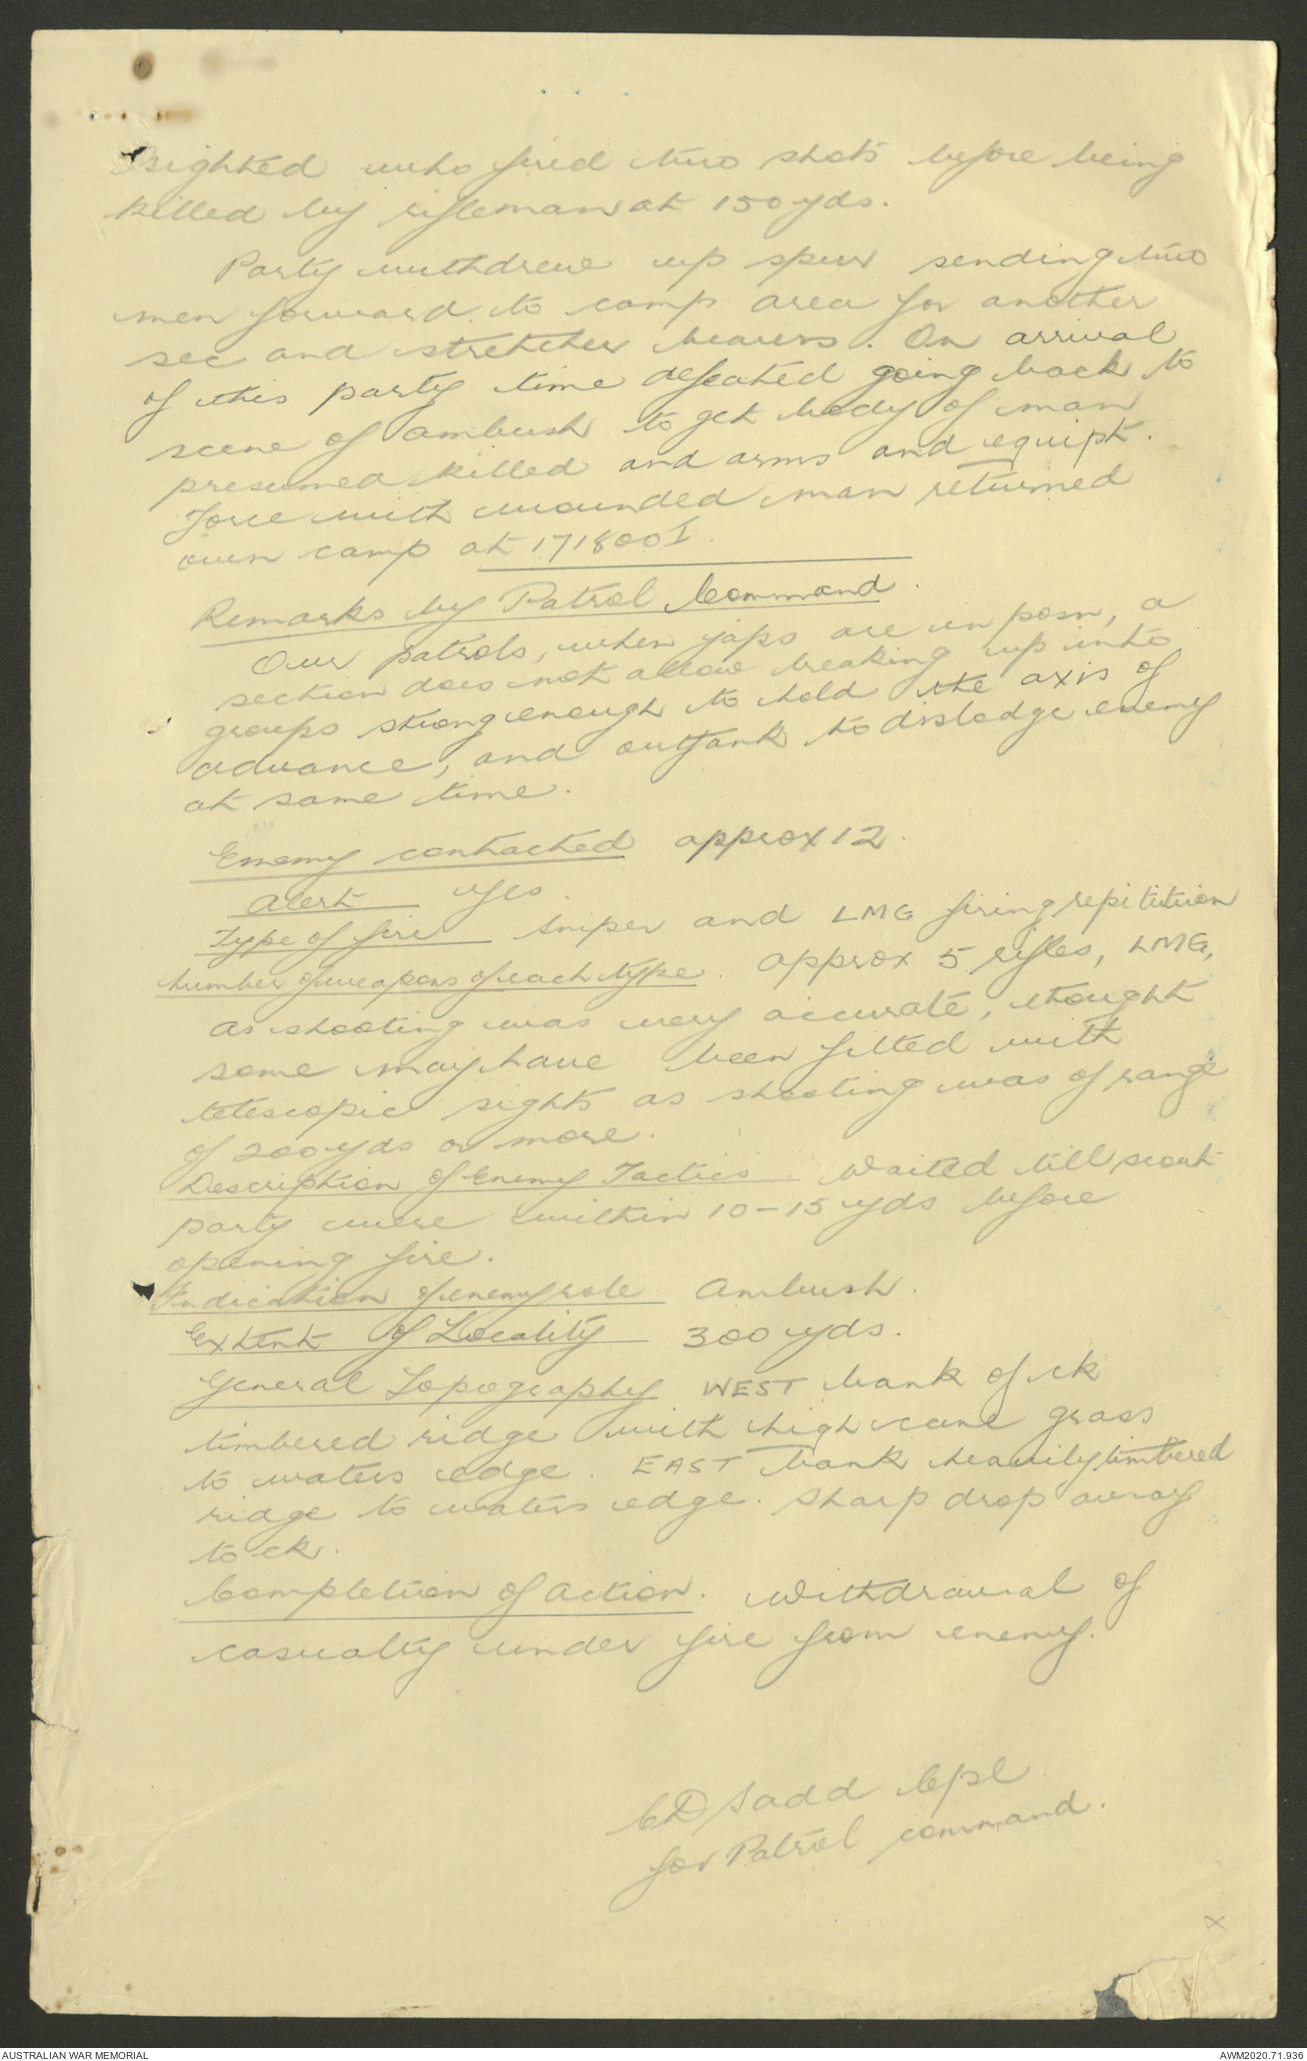 sighted who fired two shots before being
killed by rifleman at 150 yds.
Party withdrew up spur sending two
men forward to camp area for another
sec and stretcher bearers. On arrival
of this party time defeated going back to
scene of ambush to get body of man
presumed killed and arms and equipt.
Force with wounded man returned
own camp at 171800 I.
Remarks by Patrol Command.
Our patrols, when japs are in posn, a
section does not allow breaking up into
groups strong enough to hold the axis of
advance, and outflank to dislodge enemy
at same time.
Enemy contacted approx 12.
Alert Yes.
Type of fire Sniper and LMG firing repitition
Number of weapons of each type. approx 5 rifles, LMG,
as shooting was very accurate, thought
some may have been fitted with
telescopic sights as shooting was of range
of 200 yds or more.
Description of Enemy Tactics. Waited till scout
party were within 10-15 yds before
opening fire.
Indication of enemy role Ambush.
Extent of Locality 300 yds.
General Topography WEST bank of ck
timbered ridge with high cane grass
to waters edge. EAST bank heavily timbered
ridge to waters edge. Sharp drop away
to ck.
Completion of Action. Withdrawal of
casualty under fire from enemy.
CD Sadd Cpl
for Patrol command.
X
AUSTRALIAN WAR MEMORIAL
AWM2020.71.936